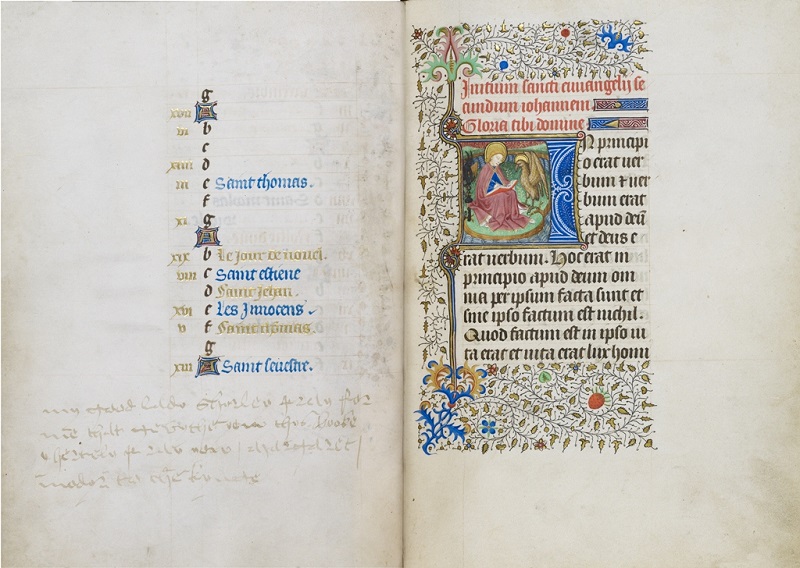 g
xvii A
vi b
c
xiiii d
iii e Saint thomas.
f
xi g
A
xix b Le jour de nouel.
viii c Saint estiene
d Saint Jehan.
xvi e Les Innocens
v f Saint thomas.
g
xiii A Saint seuestre.
my good lady
me that
Initium sancti euuangelij se
cundum iohannem
Gloria tibi domine
IN principi
o erat uer
bum et uer
bum erat
apud deū
et deus e
rat uerbum. Hoc erat in
principio apud deum om
nia per ipsum facta sunt et
sine ipso factum est nichil.
Quod factum est in ipso ui
ta erat et uita erat lux homi